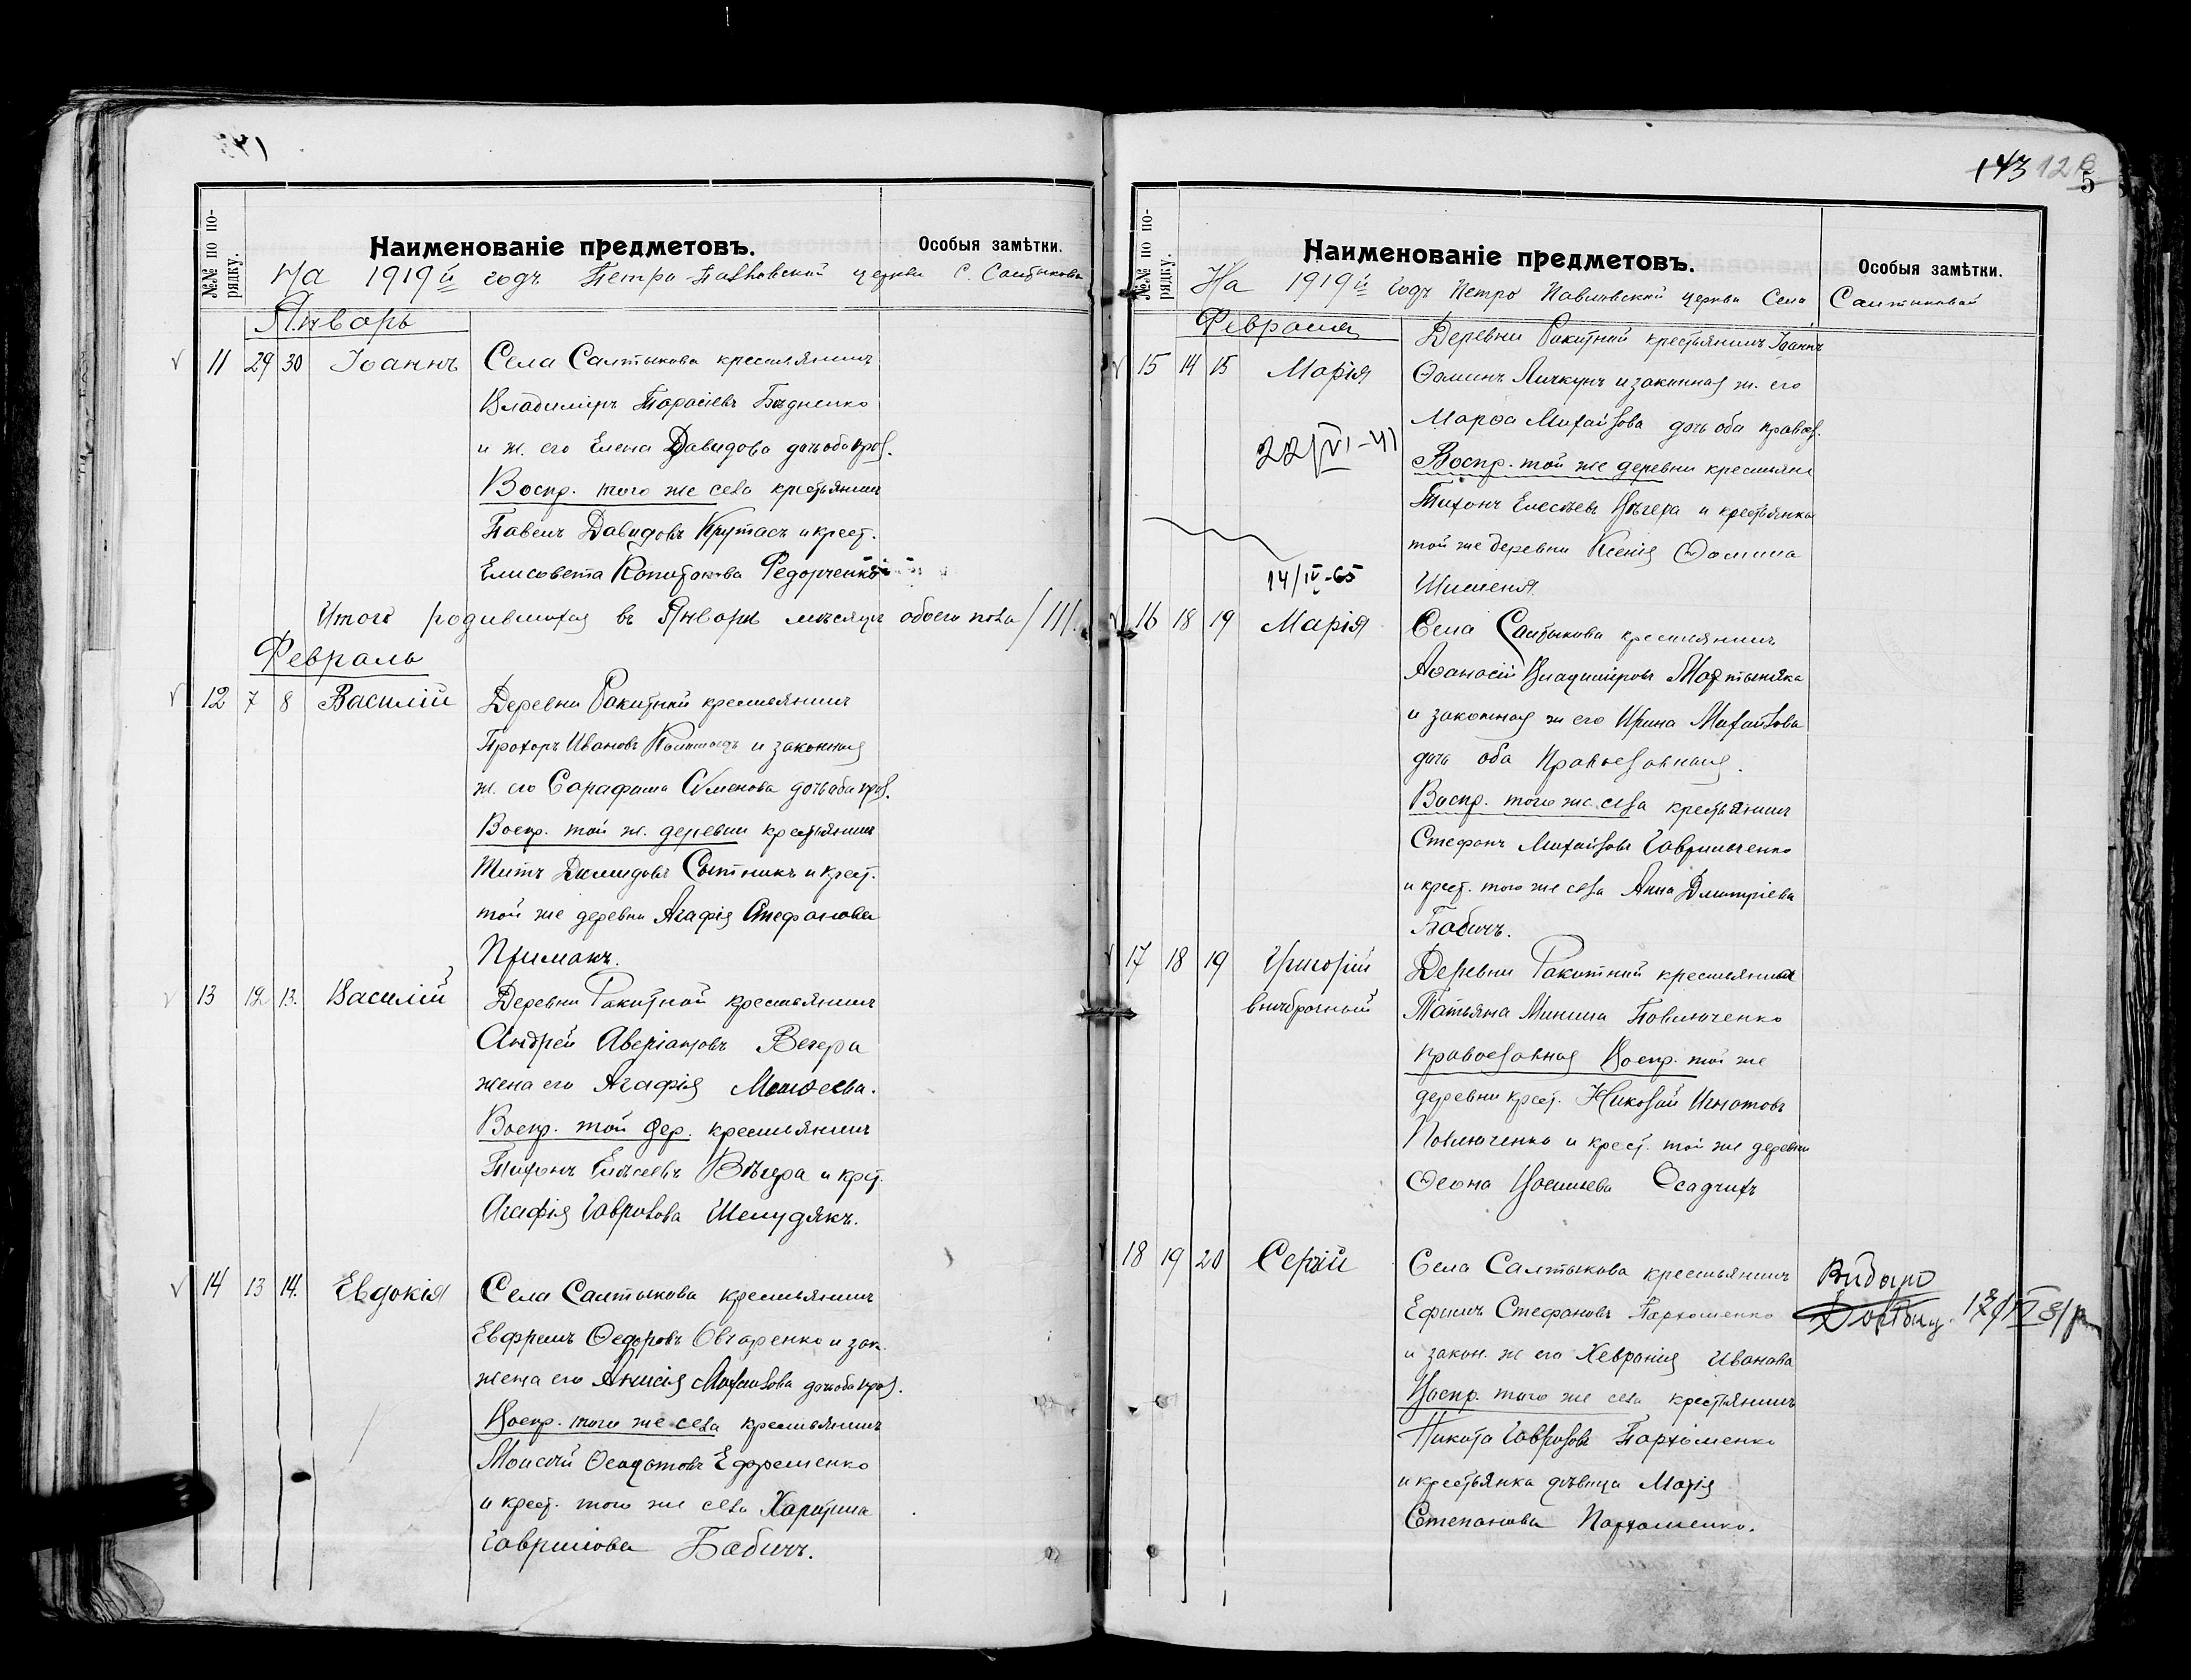 №№ по по-
рядку.
Наименованіе предметовъ.
Особыя замѣтки.
На 1919й годъ Петро Павловской церкви с. Салтыкова
Январь
11 29 30 Іоаннъ Села Салтыкова крестьянинъ
Владиміръ Тарасіевъ Бѣдненко
и ж. его Елена Давидова дочь оба прав.
Воспр. того же села крестьянинъ
Павелъ Давидовъ Крутась и крест.
Елисавета Федорченко
Итого родившихся въ Январѣ мѣсяцѣ обоего пола /11/.
Февраль
12 7 8 Василій Деревни Ракитной крестьянинъ
Прохоръ Ивановъ и законная
ж. его Сарафима Сѵмеонова дочь оба прав.
Воспр. той ж. деревни крестьянинъ
Титъ Демидовъ Сытникъ и крест.
той же деревни Агафія Стефанова
Примакъ.
13 12 13. Василій Деревни Ракитной крестьянинъ
Андрей Аверіановъ Вегера
жена его Агафія Моисеева.
Воспр. той дер. крестьянинъ
Тихонъ Елисеевъ Вѣгера и крест.
Агафія Гаврилова Шелудякъ.
14 13 14. Евдокія Села Салтыкова крестьянинъ
Евфремъ Ѳедоровъ Овчаренко и зак.
жена его Анисія Михаилова дочь оба прав.
Воспр. того же села крестьянинъ
Моисей Ѳедотовъ Ефременко
и крест. того же села Харитина
Гаврилова Бабичъ.
143 12
5
№№ по по-
рядку.
Наименованіе предметовъ.
Особыя замѣтки.
На 1919й Годъ Петро Павловской церкви Села Салтыковой
Февраля
Деревни Ракитной крестьянинъ Іоаннъ
15 14 15 Марія Ѳоминъ Личкунъ и законная ж. его
Марѳа Михайлова дочь оба правос.
22/VI-41
Воспр. той же деревни крестьяне
Тихонъ Елесѣевъ Вѣгера и крестьянка
той же деревни Ксенія Ѳомина
14/IV-65
Шишеня.
16 18 19 Марія Села Салтыкова крестьянинъ
Аѳанасій Владиміровъ Мартыняка
и законная ж его Ирина Михайлова
дочь оба Православныя.
Воспр. того же села крестьянинъ
Стефанъ Михайловъ Гавриленко
и крест. того же села Анна Дмитріева
Бабичъ.
17 18 19 Григорій Деревни Ракитной крестьянка
внѣбрачный Татьяна Минина Павлюченко
православная Воспр. той же
деревни крест. Николай Игнатовъ
Павлюченко и крест. той же деревни
Ѳеона Васильева Осадчихъ
18 19 20 Сергій Села Салтыкова крестьянинъ
Ефимъ Стефановъ Пархоменко
и закон. ж его Хеврания Иванова
Воспр. того же села крестьянинъ
Никита Гавриловъ Пархоменко
и крестьянка дѣвица Марія
Степанова Пархоменко.
Видано